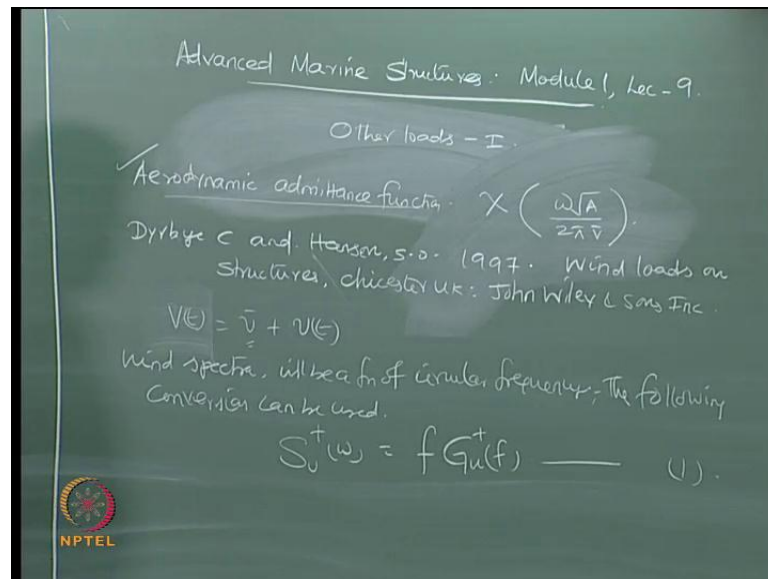 Advanced Marine Structures: Module 1, Lec-9.
Other loads - I.
Aerodynamic admittance functn. X (ω√A / 2π v̄).
Dyrbye C and. Hansen, S.O. 1997. Wind loads on
Structures, chicester UK: John Wiley & Sons Inc.
V(t) = v̄ + v(t)
Wind spectra, will be a fn of circular frequency; The following
Conversion can be used.
S_u^+(ω) = f G_u^+(f) —— (1).
NPTEL